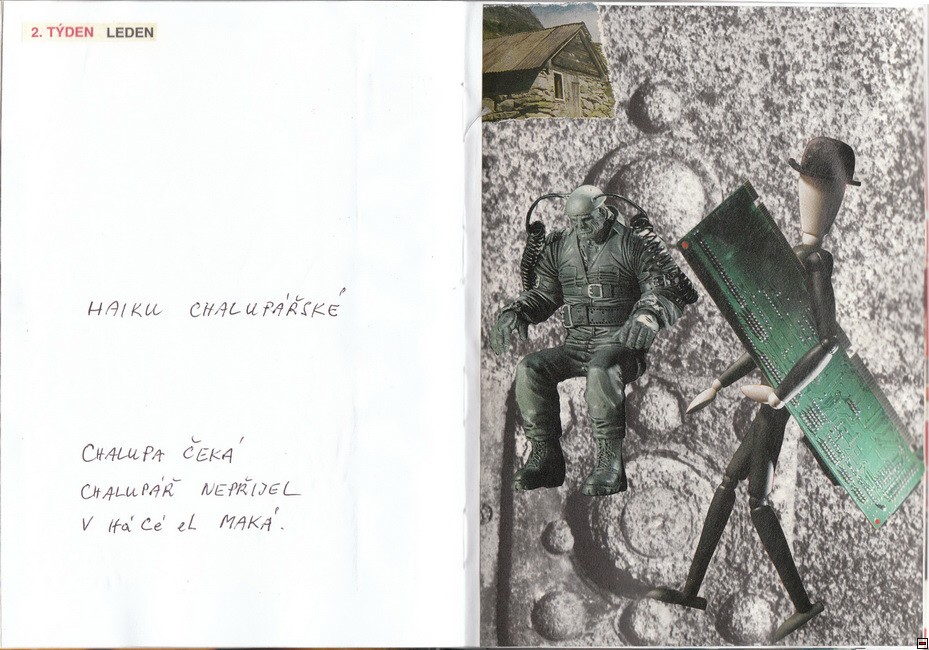 2. TÝDEN LEDEN
HAIKU CHALUPÁŘSKÉ
CHALUPA ČEKÁ
CHALUPÁŘ NEPŘIJEL
V Há Cé eL MAKÁ.